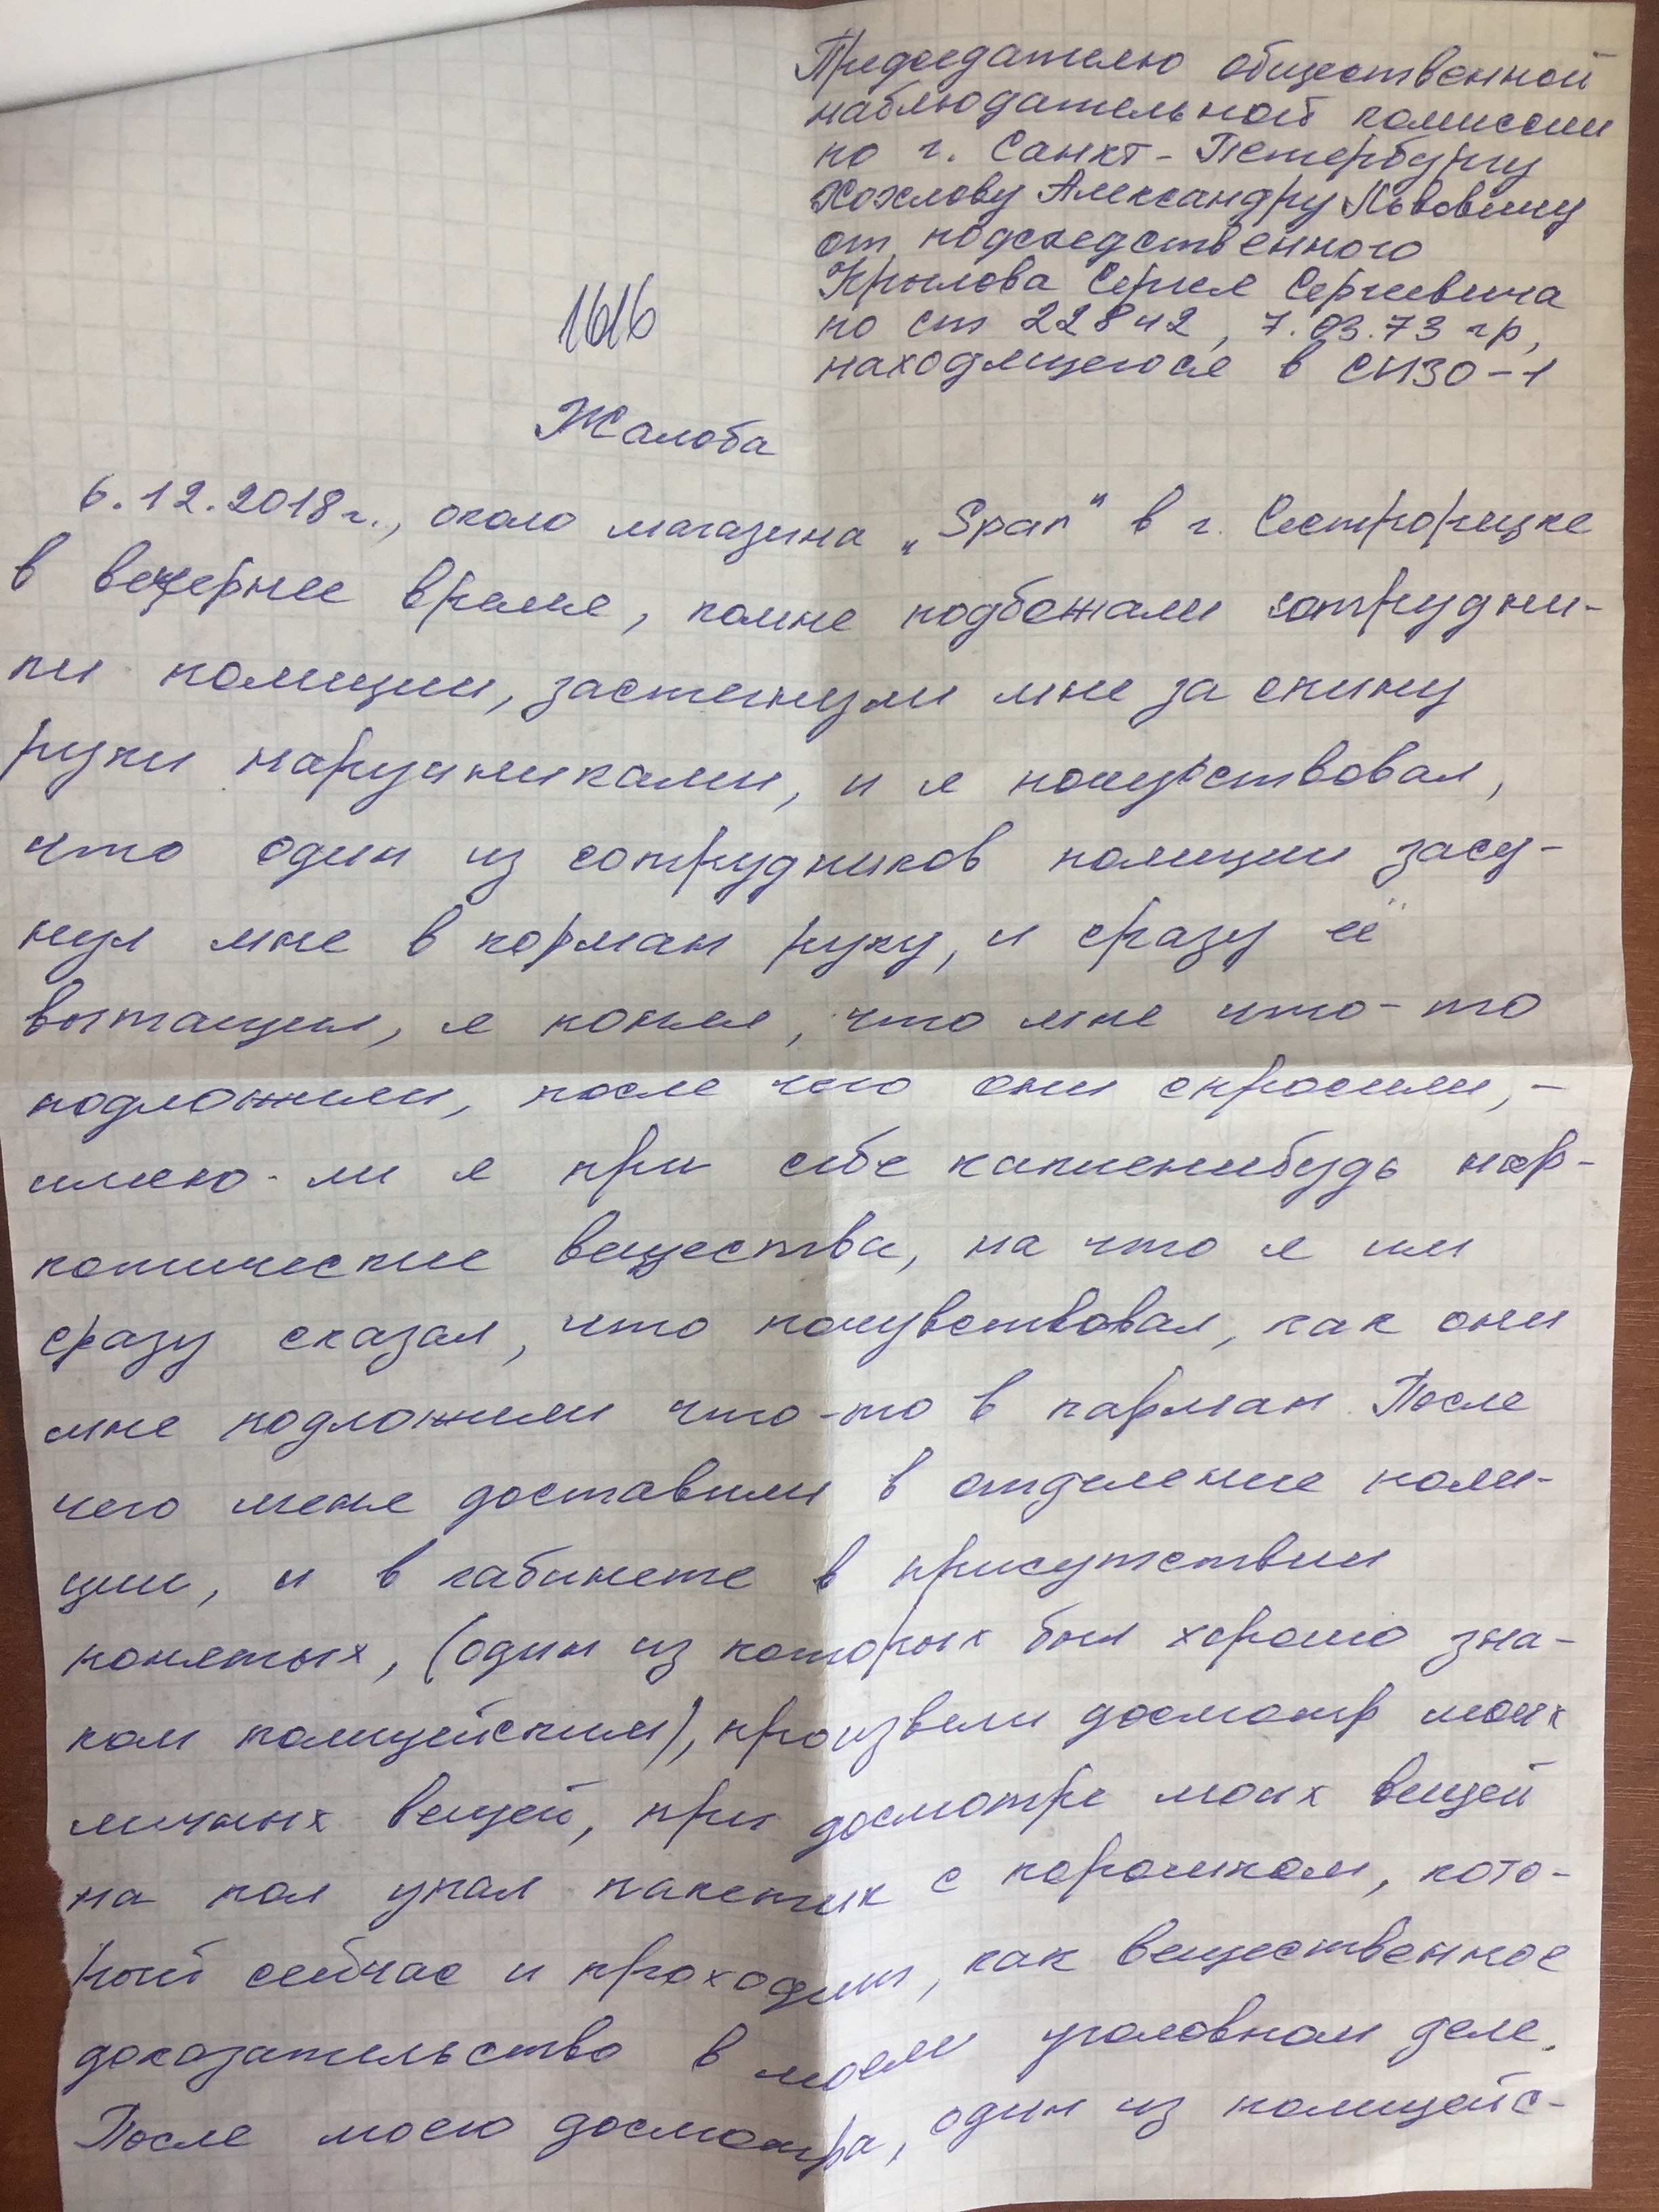 Председателю общественной
наблюдательной комиссии
по г. Санкт-Петербургу
Хохлову Александру Львовичу
от подследственного
Крылова Сергея Сергеевича
по ст 228ч2, 7.03.73 гр,
находящегося в СИЗО-1
1616
Жалоба
6.12.2018г., около магазина „Spar" в г. Сестрорецке
в вечернее время, комне подбежали сотрудни-
ки полиции, застегнули мне за спину
руки наручниками, и я почувствовал,
что один из сотрудников полиции засу-
нул мне в корман руку, и сразу её
вытащил, я понял, что мне что-то
подложили, после чего они спросили, -
имею-ли я при себе какиенибудь нар-
котические вещества, на что я им
сразу сказал, что почувствовал, как они
мне подложили что-то в карман. После
чего меня доставили в отделение поли-
ции, и в кабинете в присутствии
понятых, (один из которых был хорошо зна-
ком полицейским), произвели досмотр моих
личных вещей, при досмотре моих вещей
на пол упал пакетик с порошком, кото-
рый сейчас и проходит, как вещественное
доказательство в моем уголовном деле.
После моего досмотра, один из полицейс-